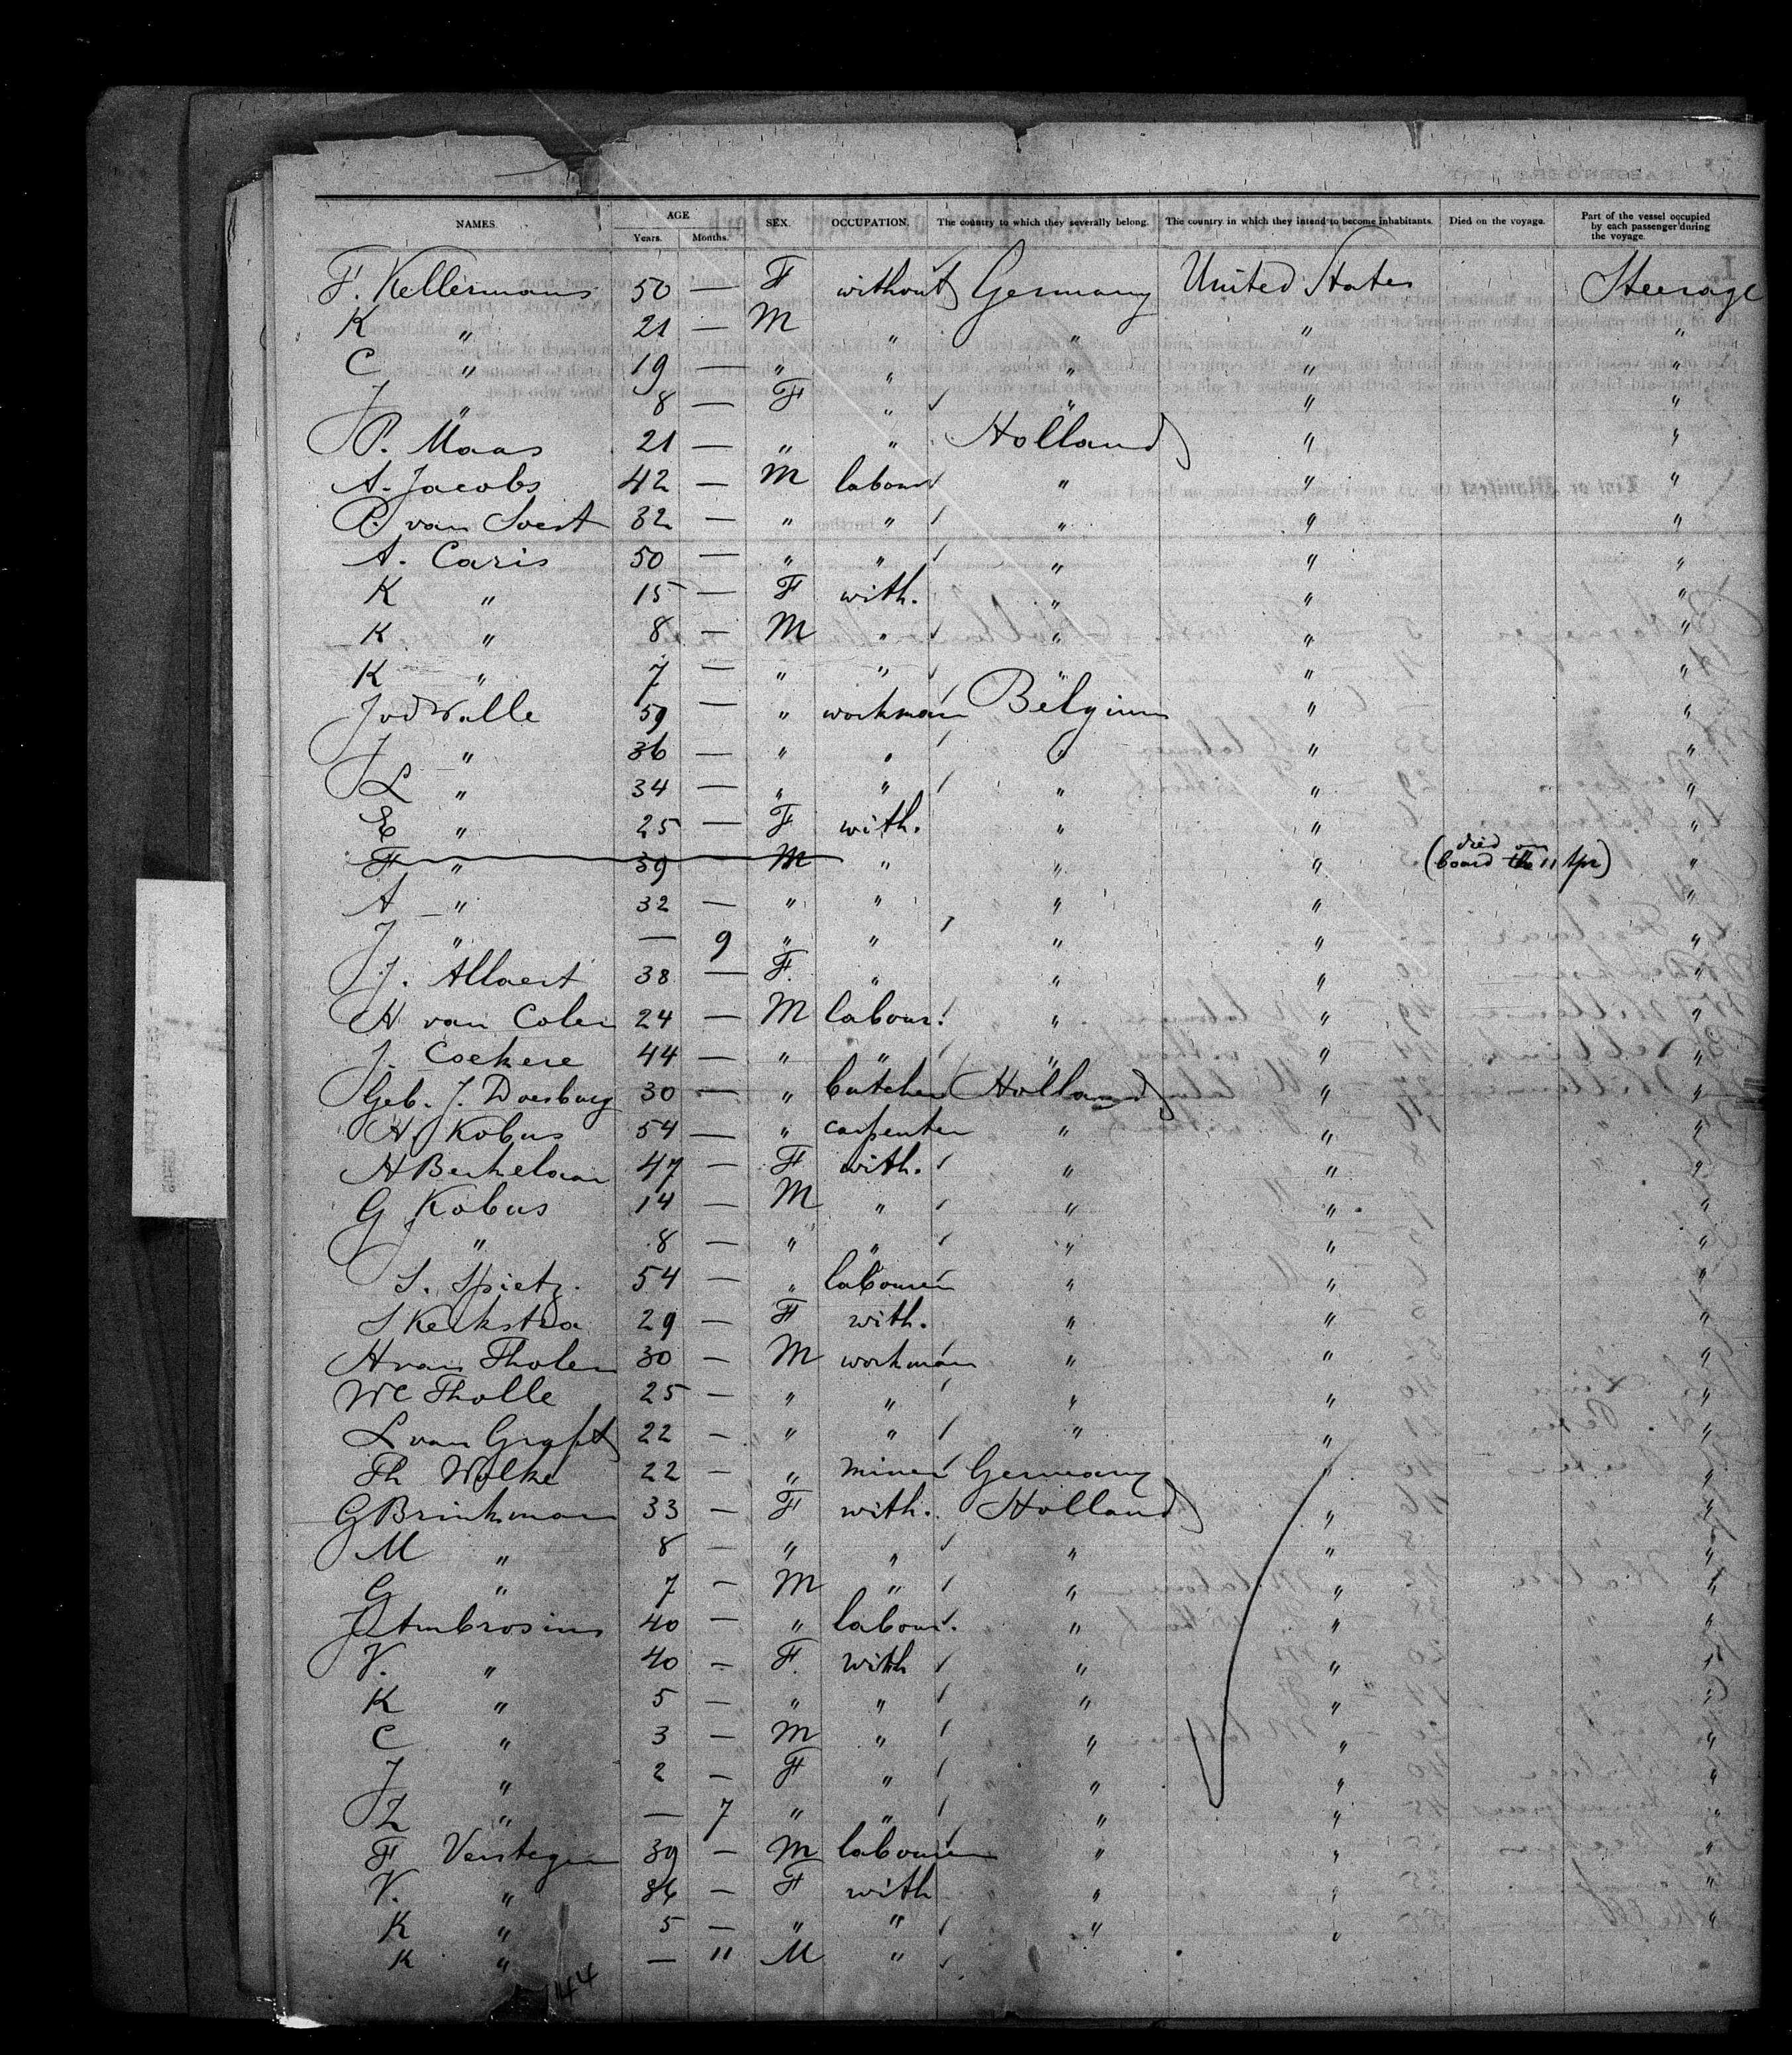 NAMES. AGE SEX. OCCUPATION. The country to which they severally belong. The country in which they intend to become inhabitants. Died on the voyage. Part of the vessel occupied by each passenger during the voyage.
Years. Months.
F. Kellermans 50 — F without Germany United States Steerage
K " 21 — M " " " "
C " 19 — " " " " "
J " 8 — F " " " "
P. Maas 21 — " " Holland " "
A. Jacobs 42 — M labour " " "
P. van Soest 32 — " " " " "
A. Caris 50 — " " " " "
K " 15 — F with. " " "
K " 8 — M " " " "
K " 7 — " " " " "
J vd Walle 59 — " workman Belgium " "
J " 36 — " " " " "
L " 34 — " " " " "
E " 25 — F with. " " "
F " 39 — M " " " (died on board the 11 Apr) "
A " 32 — " " " " "
J " — 9 " " " " "
J. Allaert 38 — F. " " " "
H van Colen 24 — M labour. " " "
J. Coekere 44 — " " " " "
Geb. J. Doesburg 30 — " butcher Holland " "
H. Kobus 54 — " carpenter " " "
H Berkelaar 47 — F with. " " "
G Kobus 14 — M " " " "
J " 8 — " " " " "
S. Spietz. 54 — " labourer " " "
S Kerkstra 29 — F with. " " "
H van Tholen 30 — M workman " " "
Wc Tholle 25 — " " " " "
L van Graft 22 — " " " " "
Th Wolke 22 — " miner Germany " "
G Brinkman 33 — F with. Holland " "
M " 8 — " " " " "
G " 7 — M " " " "
J Ambrosius 40 — " labour. " " "
V. " 40 — F. with " " "
K " 5 — " " " " "
C " 3 — M " " " "
J " 2 — F " " " "
L " — 7 " " " " "
F Verstegen 39 — M labourer " " "
V. " 36 — F with " " "
K " 5 — " " " " "
K " — 11 M "
144